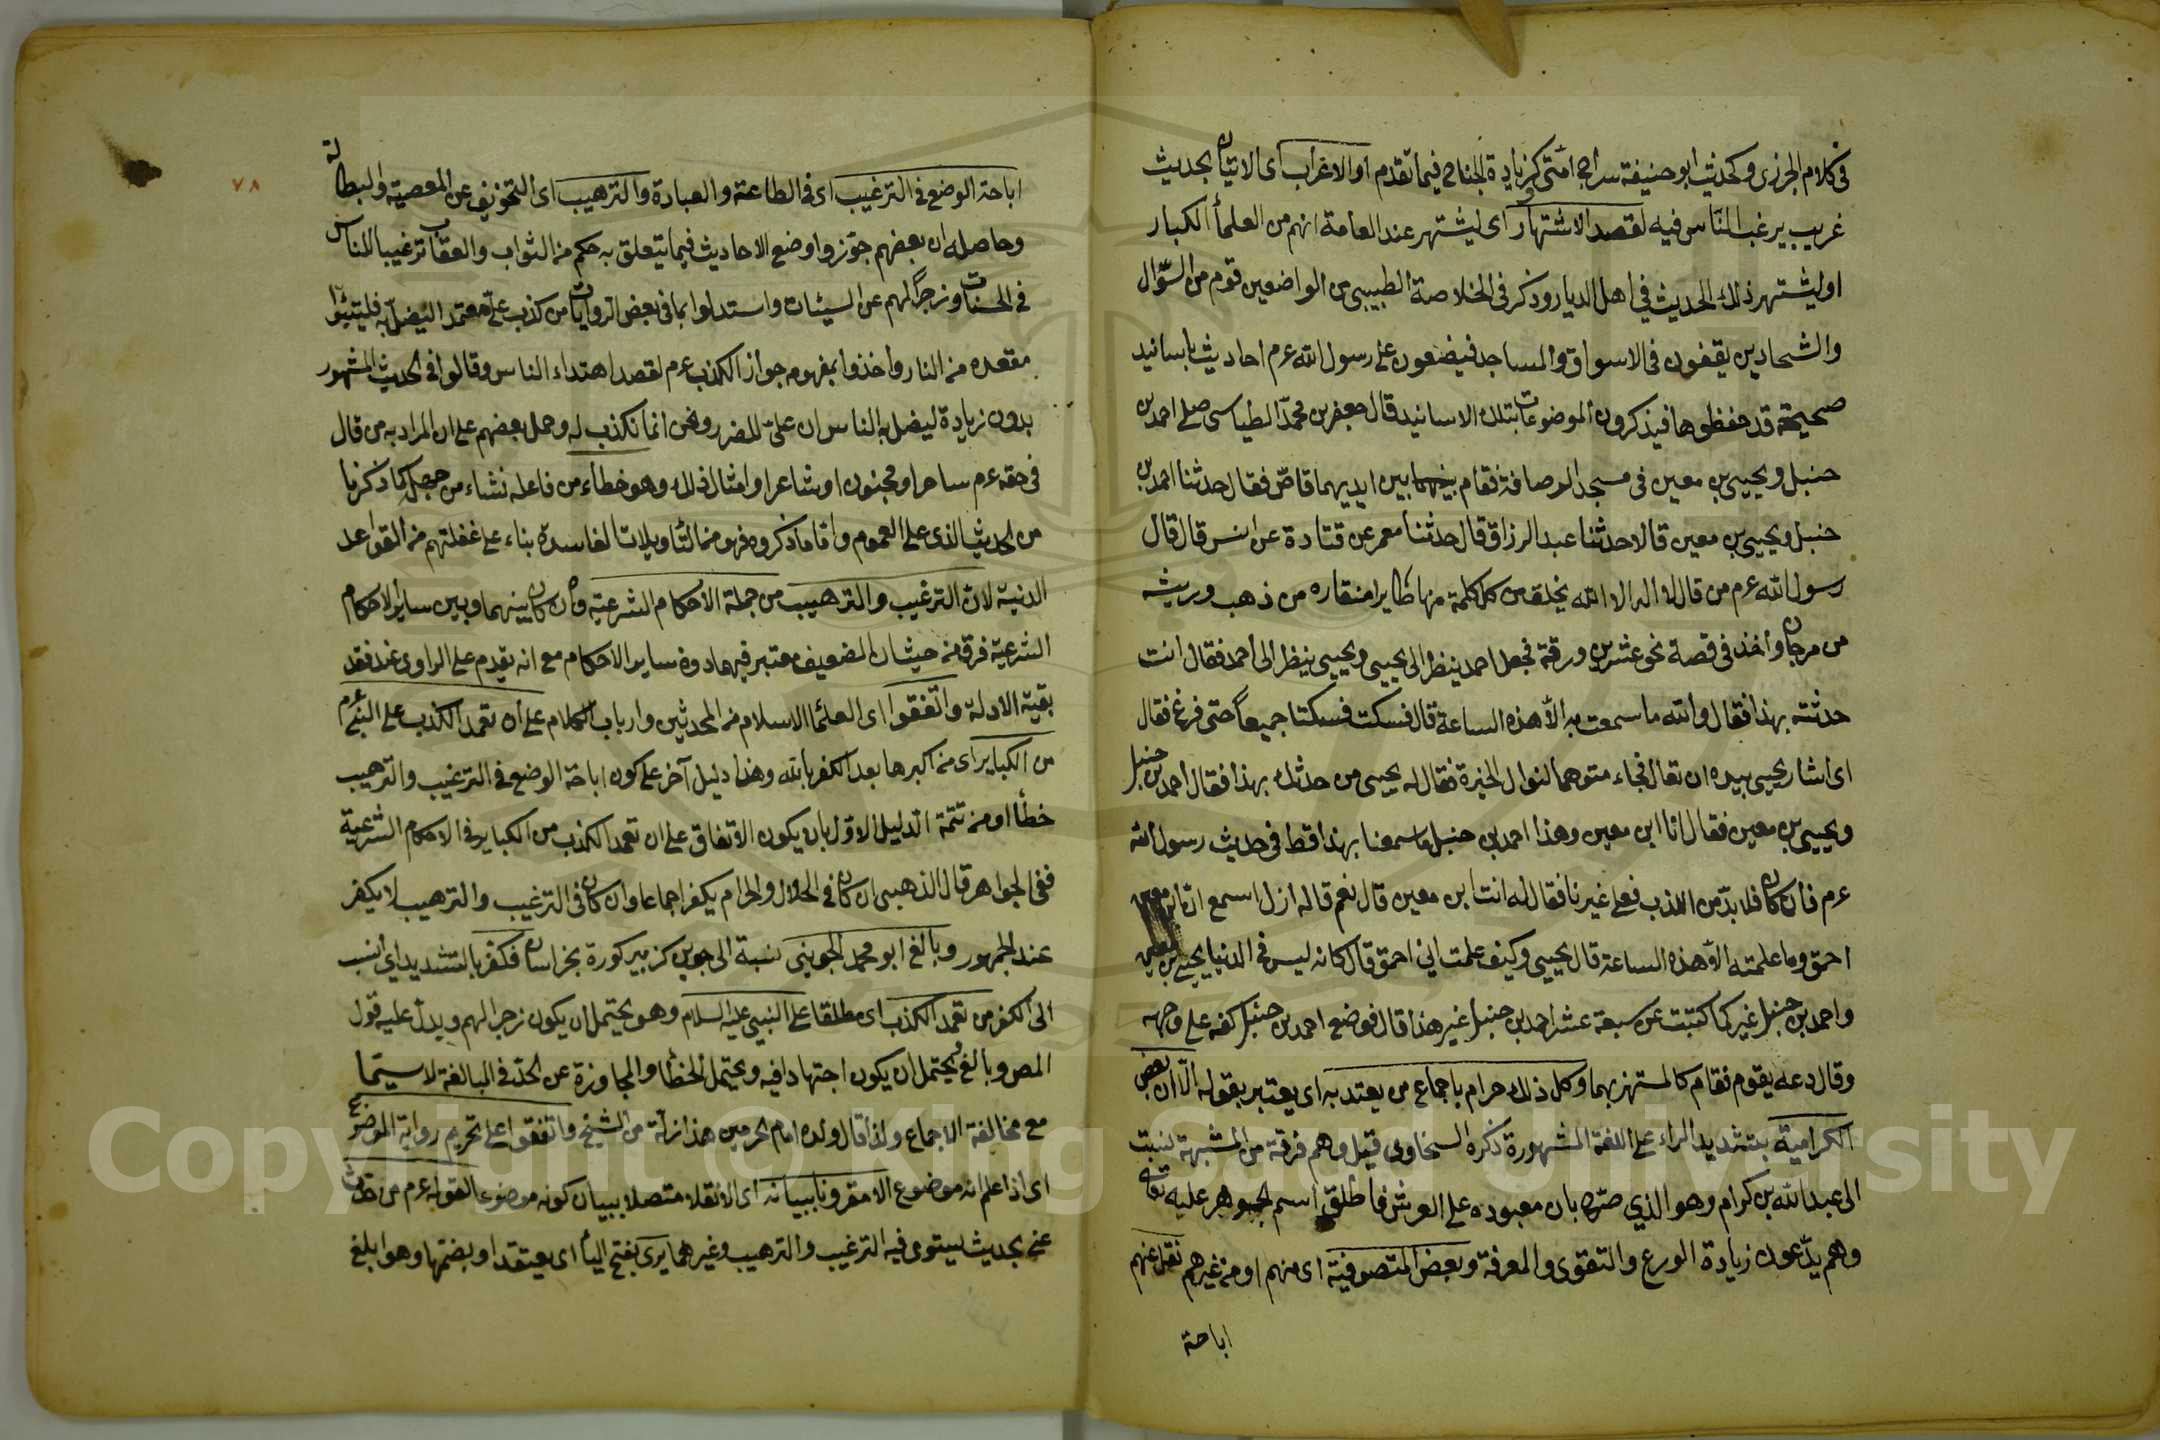 في كلام الجزري وكحديث ابو حنيفة سراج امتي كزيادة الجناح فيما تقدم او الاغراب اى الاتيان بحديث
غريب يرغب الناس فيه لقصد الاشتهار اى ليشتهر عند العامة انهم من العلماء الكبار
او ليشتهر ذلك الحديث في اهل الديار وذكر فى الخلاصة الطيبي من الواضعين قوم من السؤال
والشحادين يقفون فى الاسواق والمساجد فيضعون على رسول الله عم احاديث باسانيد
صحيحة قد حفظوها فيذكرون الموضوعات بتلك الاسانيد قال جعفر بن محمد الطيالسى صلى احمد بن
حنبل ويحيى بن معين فى مسجد الرصافة فقام بين ايديهما قاص فقال حدثنا احمد بن
حنبل ويحيى بن معين قالا حدثنا عبد الرزاق قال حدثنا معمر عن قتادة عن انس قال قال
رسول الله عم من قال لا اله الا الله يخلق من كل كلمة منها طايرا منقاره من ذهب وريشه
من مرجان واخذ فى قصة نحو عشرين ورقة فجعل احمد ينظر الى يحيى ويحيى ينظر الى احمد فقال انت
حدثته بهذا فقال والله ما سمعت به الا هذه الساعة قال فسكت فسكتا جميعا حتى فرغ فقال
اى اشار يحيى بيده ان تعال فجاء متوهما لنوال الخيرة فقال له يحيى من حدثك بهذا فقال احمد بن حنبل
ويحيى بن معين فقال انا ابن معين وهذا احمد بن حنبل ما سمعنا بهذا قط فى حديث رسول الله
عم فان كان فلا بد من الكذب فعلى غيرنا فقال له انت ابن معين قال نعم قال لم ازل اسمع ان ابن معين
احمق وما علمته الا هذه الساعة قال يحيى وكيف علمت انى احمق قال كانه ليس فى الدنيا يحيى بن معين
واحمد بن حنبل غيركما كتبت عن سبعة عشر احمد بن حنبل غير هذا قال فوضع احمد بن حنبل كفه على وجهه
وقال دعه يقوم فقام كالمستهزئ بهما وكل ذلك حرام باجماع من يعتد به اى يعتبر بقوله الا ان بعض
الكرامية بتشديد الراء على اللغة المشهورة ذكره السخاوى قيل وهم فرقة من المشبهة نسبت
الى عبد الله بن كرام وهو الذي صرح بان معبوده على العرش فاطلق اسم الجوهر عليه تعالى
وهم يدعون زيادة الورع والتقوى والمعرفة وبعض المتصوفية اى منهم او من غيرهم نقل عنهم
اباحة
٧٨
اباحة الوضع فى الترغيب اى فى الطاعة والعبادة والترهيب اى التخويف عن المعصية والبطالة
وحاصله ان بعضهم جوزوا وضع الاحاديث فيما يتعلق به حكم من الثواب والعقاب ترغيبا للناس
فى الحسنات وزجرا لهم عن السيئات واستدلوا بما فى بعض الروايات من كذب علي متعمدا ليضل به فليتبوأ
مقعده من النار واخذوا بمفهومه جواز الكذب عم لقصد اهتداء الناس وقالوا فى الحديث المشهور
بدون زيادة ليضل به الناس ان على للضرر ونحن انما نكذب له وحمل بعضهم على ان المراد به من قال
فى حقه عم ساحر او مجنون او شاعر او امثال ذلك وهو خطاء من فاعله نشاء من جهل كما ذكرنا
من الحديث الذى على العموم واما ما ذكروه فهو من التاويلات الفاسدة بناء على غفلتهم من القواعد
الدنية لان الترغيب والترهيب من جملة الاحكام الشرعية وان كان بينهما وبين ساير الاحكام
الشرعية فرق من حيث ان الضعيف معتبر فيهما دون ساير الاحكام مع انه يقدم على الراوى عند فقد
بقية الادلة واتفقوا اى العلماء الاسلام من المحدثين وارباب الكلام على ان تعمد الكذب على النبي عم
من الكبائر اى من اكبرها بعد الكفر بالله وهذا دليل آخر على كون اباحة الوضع فى الترغيب والترهيب
خطأ او من تتمة الدليل الاول بان يكون الاتفاق على ان تعمد الكذب من الكبائر فى الاحكام الشرعية
ففى الجواهر قال الذهبى ان كان فى الحلال والحرام يكفر اجماعا وان كان فى الترغيب والترهيب لا يكفر
عند الجمهور وبالغ ابو محمد الجوينى نسبة الى جوين كزبير كورة بخراسان فكفر بالتشديد اي انسب
الى الكفر من تعمد الكذب اى مطلقا على النبي عليه السلام وهو يحتمل ان يكون زجرا لهم ويدل عليه قول
المص وبالغ ويحتمل ان يكون اجتهادا فيه ويحتمل الخطأ والمجاوزة عن الحد فى المبالغة لا سيما
مع مخالفة الاجماع ولذا قال ولده امام الحرمين هذا زلة من الشيخ واتفقوا على تحريم رواية الموضوع
اى اذا علم انه موضوع الا مقرونا ببيانه اى الا نقلا متصلا ببيان كونه موضوعا لقوله عم من حدث
عني بحديث يستوى فيه الترغيب والترهيب وغيرهما يرى بفتح الياء اى يعتقد او بضمها وهو ابلغ
Copyright © King Saud University